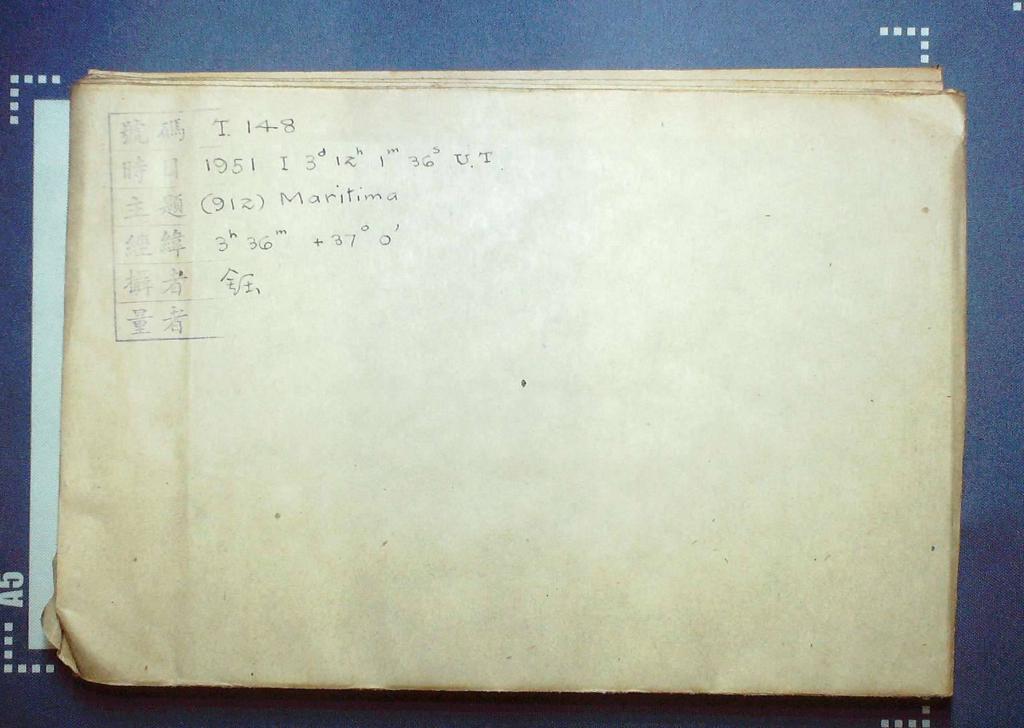 號碼 T. 148
時日 1951 I 3ᵈ 12ʰ 1ᵐ 36ˢ U.T.
主題 (912) Maritima
經緯 3ʰ 36ᵐ +37° 0′
攝者
量者
A5